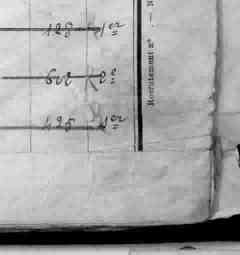 128 1er
602 2e
425 1er
Recrutement n° . — N